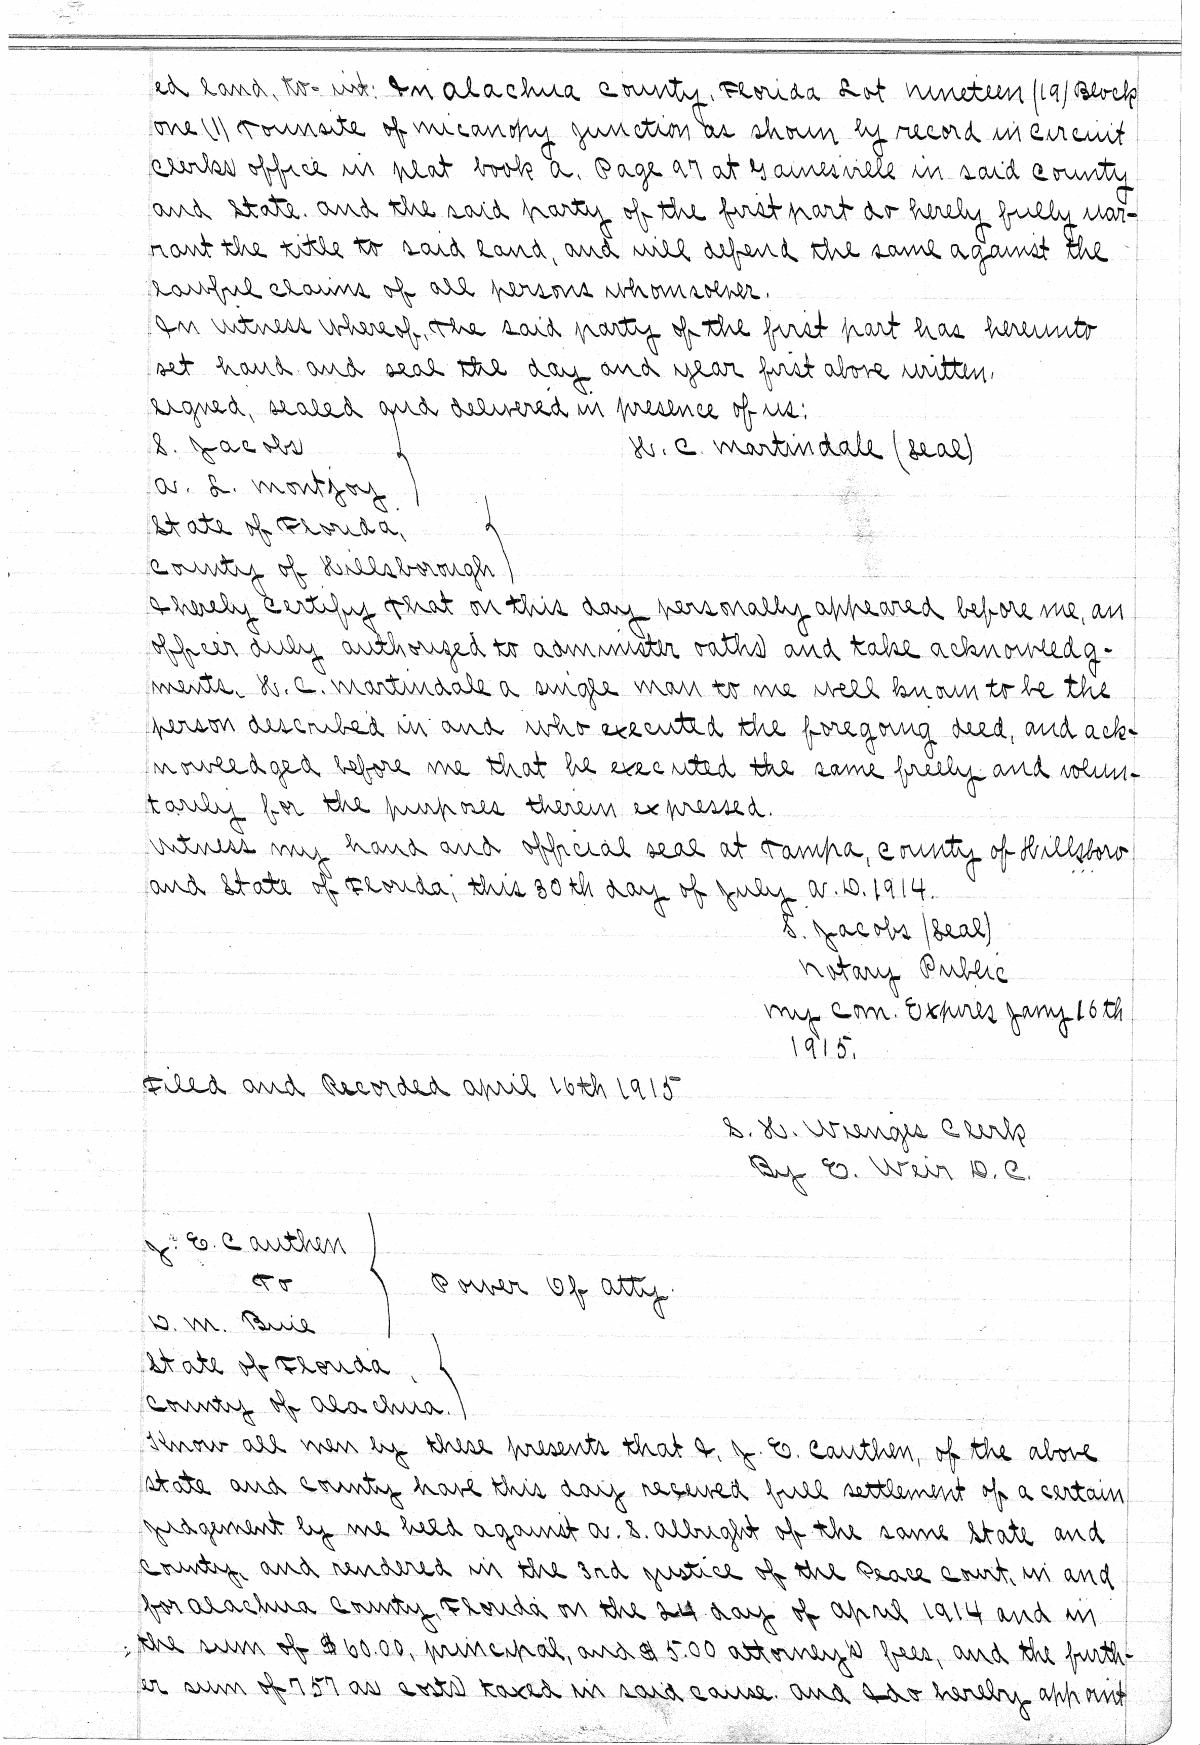 ed land, to-wit: In Alachua County, Florida Lot nineteen (19) Block
one (1) Townsite of Micanopy Junction as shown by record in Circuit
Clerks office in plat book A. Page 97 at Gainesville in said County
and State. and the said party of the first part do hereby fully war-
rant the title to said land, and will defend the same against the
lawful claims of all persons whomsoever.
In witness whereof, the said party of the first part has hereunto
set hand and seal the day and year first above written.
Signed, sealed and delivered in presence of us:
S. Jacobs H. C. Martindale (Seal)
A. L. Montjoy
State of Florida,
County of Hillsborough
I hereby certify that on this day personally appeared before me, an
officer duly authorized to administer oaths and take acknowledg-
ments, H. C. Martindale a single man to me well known to be the
person described in and who executed the foregoing deed, and ack-
nowledged before me that he executed the same freely and volun-
tarily for the purposes therein expressed.
Witness my hand and official seal at Tampa, County of Hillsboro
and State of Florida, this 30th day of July A. D. 1914.
S. Jacobs (Seal)
Notary Public
My Com. Expires Jany 16th
1915.
Filed and Recorded April 16th 1915
S. H. Wienges Clerk
By E. Weir D. C.
J. E. Cauthen
To
D. M. Buie
Power Of Atty.
State of Florida,
County of Alachua.
Know all men by these presents that I, J. E. Cauthen, of the above
state and county have this day received full settlement of a certain
judgement by me held against A. S. Albright of the same State and
County, and rendered in the 3rd Justice of the Peace Court, in and
for Alachua County, Florida on the 24 day of April 1914 and in
the sum of $60.00, principal, and $5.00 attorney's fees, and the furth-
er sum of 757 as costs taxed in said cause. and I do hereby appoint